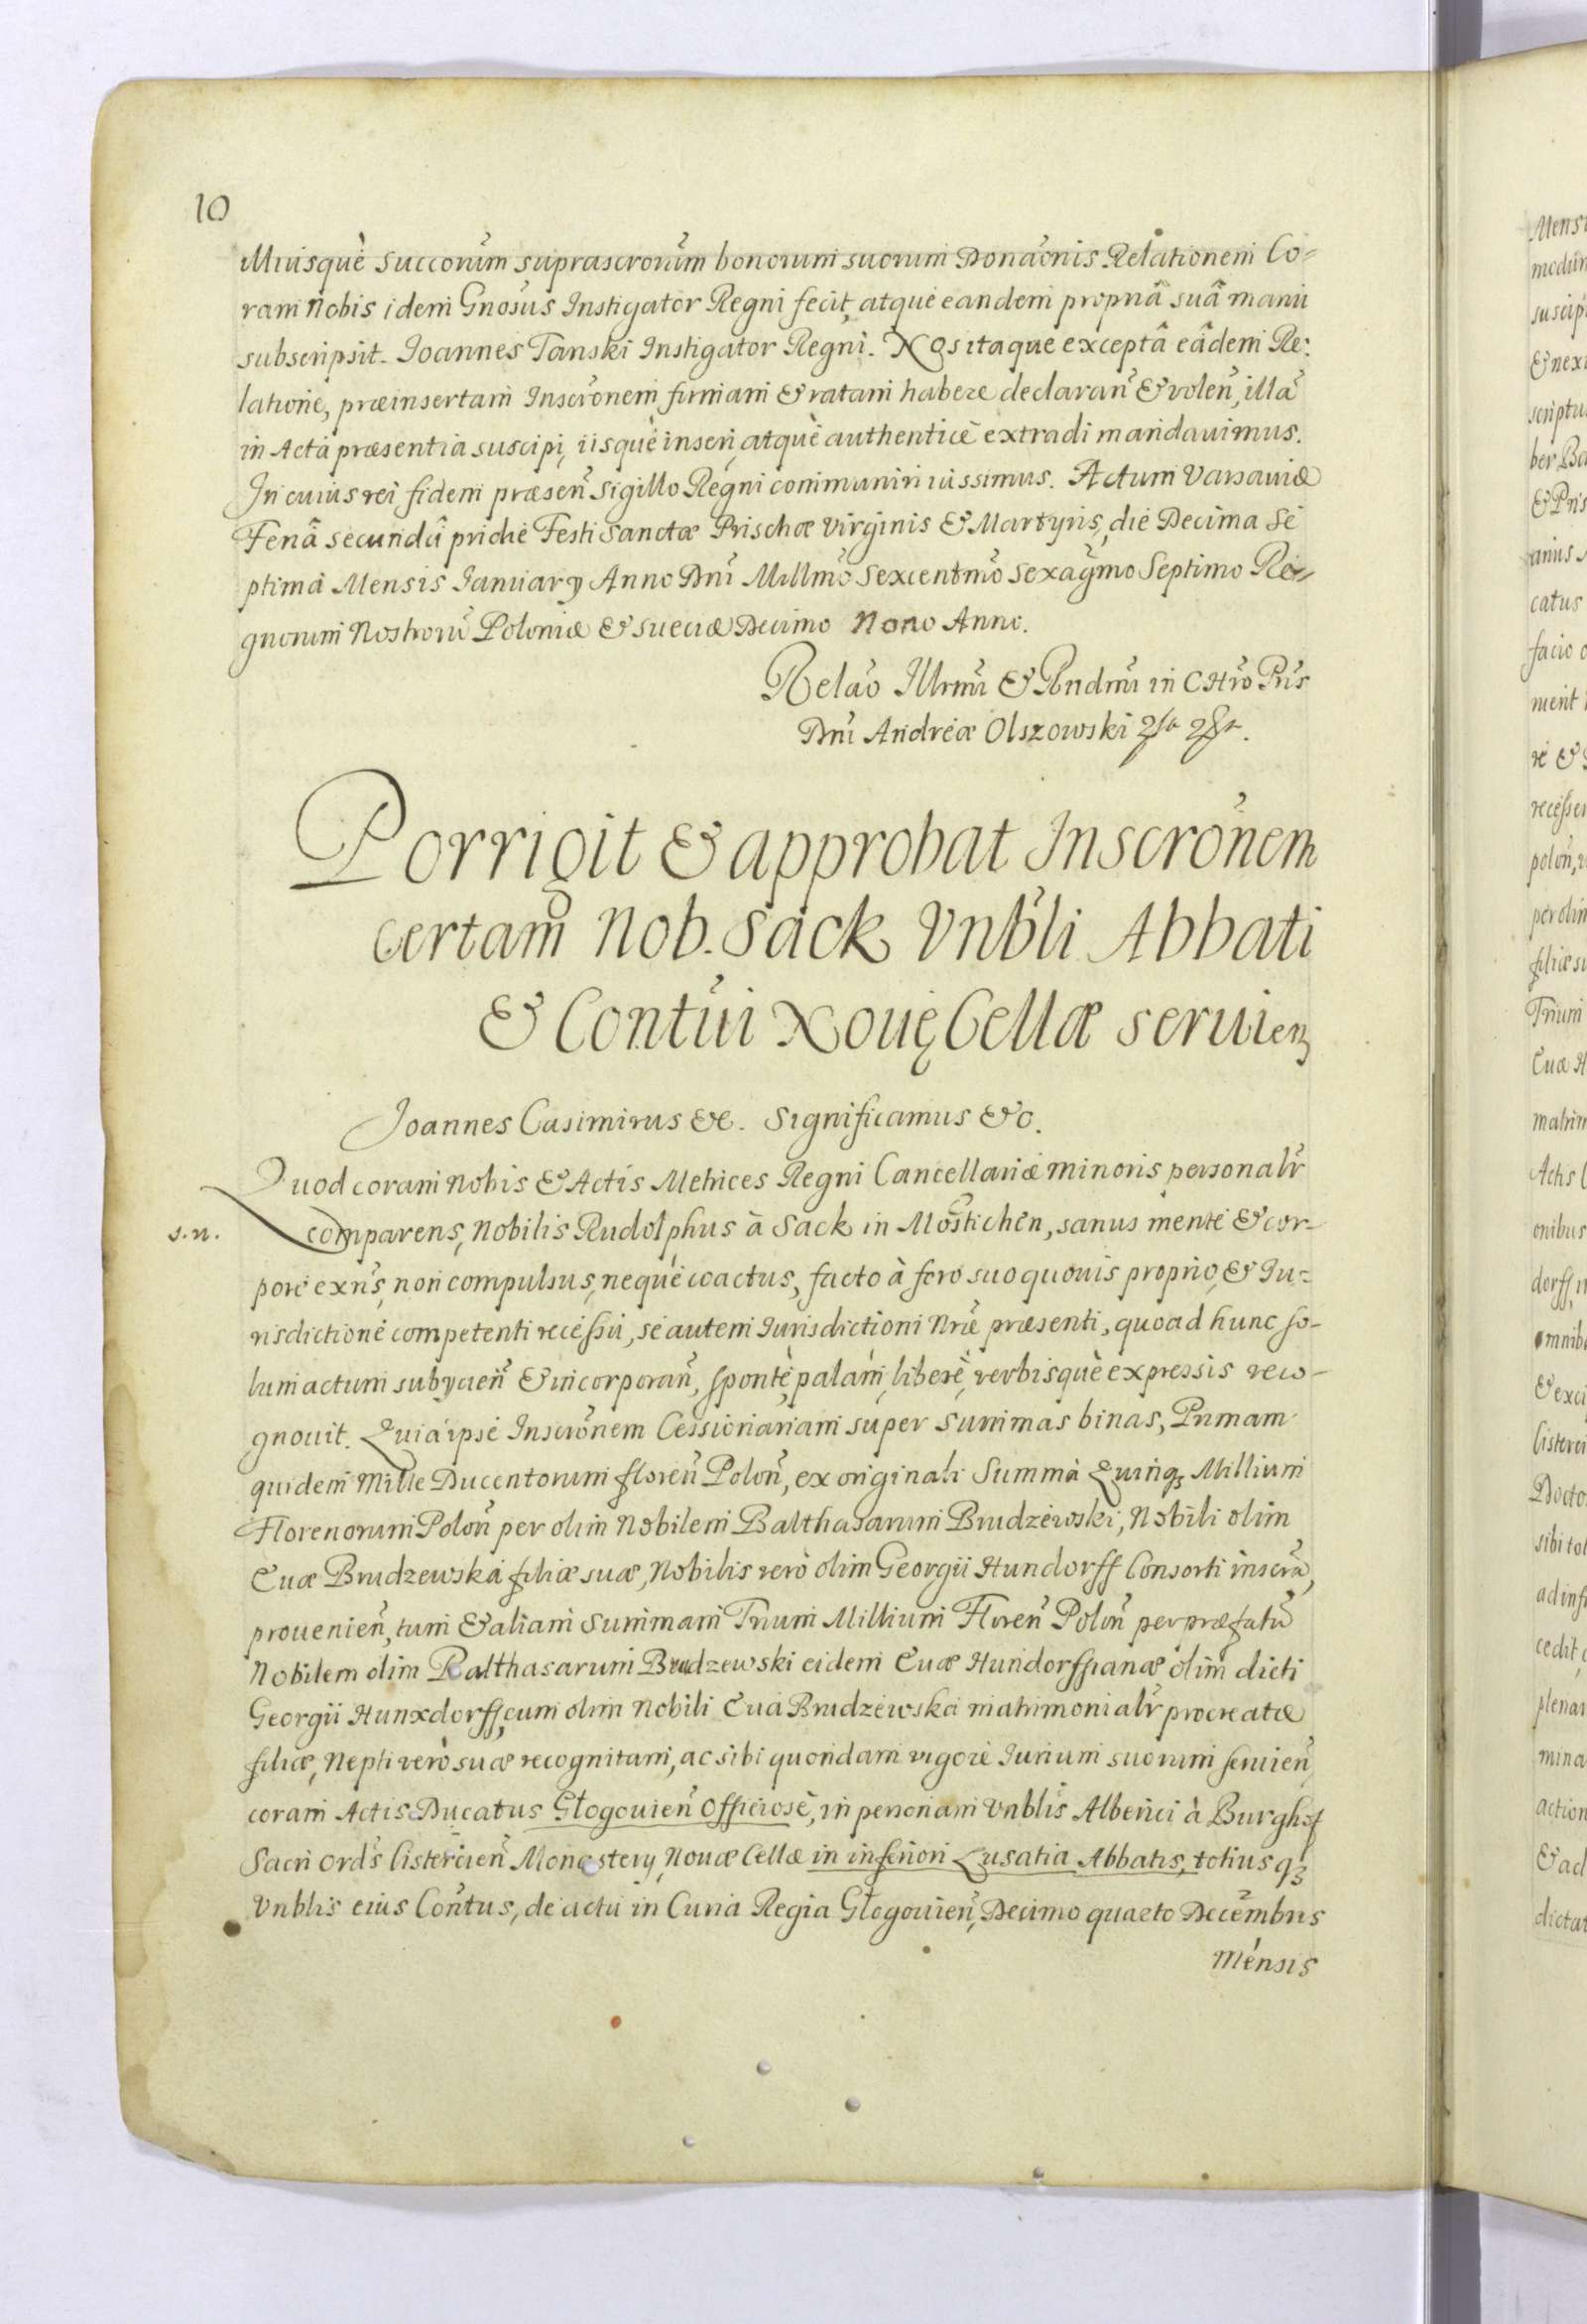 10
illiusquè Succorum̃ suprascrorum̃ bonorum suorum Donaõnis Relationem Co=
ram Nobis idem Gnosus Instigator Regni fecit, atque eandem propriâ suâ manu
subscripsit. Joannes Tanski Instigator Regni. Nos itaque exceptâ eâdem Re:
latione, præinsertam Inscrõnem firmam & ratam habere declaran̄ & volen̄, illã
in Acta præsentia suscipi, iisquè inseri, atquè authenticè extradi mandauimus.
In cuius rei fidem præsen̄ Sigillo Regni communiri iussimus. Actum Varsauiæ
Feriâ secundâ pridie Festi Sanctæ Prischæ Virginis & Martyris, die Decima Se
ptima Mensis Ianuary Anno Dni Millmo Sexcentmo Sexagmo Septimo Re=
gnorum Nostrorũ Poloniæ & Sueciæ Decimo Nono Anno.
Relaõ Illrmi & Rndmi in CHro Pris
Dni Andreæ Olszowski
Porrigit & approbat Inscrõnem
certam Nob. Sack Vnbli Abbati
& Contũi Nouę Cellæ seruien
Joannes Casimirus &c. Significamus &c.
Quod coram Nobis & Actis Metrices Regni Cancellariæ minoris personalr̃
s.n.
comparens, Nobilis Rudolphus à Sack in Mostichen, sanus mente & cor-
pore exñs, non compulsus, nequè coactus, facto à foro suo quouis proprio, & Iu=
risdictione competenti recessu, se autem Iurisdictioni Nræ præsenti, quoad hunc so-
lum actum subycien̄ & incorporan̄, spontè, palàm, liberè, verbisquè expressis reco-
gnouit. Quia ipse Inscrõnem Cessionariam super Summas binas, Primam
quidem Mille Ducentorum floren̄ Polon̄, ex originali Summa Quinqȝ Millium
Florenorum Polon̄ per olim Nobilem Balthasarum Brudzewski, Nobili olim
Euæ Brudzewska filiæ suæ, Nobilis verò olim Georgii Hundorff Consorti inscrã,
prouenien̄, tum & aliam Summam Trium Millium Floren̄ Polon̄ per præfatũ
Nobilem olim Balthasarum Brudzewski eidem Euæ Hundorffianæ olim dicti
Georgii Hunxdorff, cum olim Nobili Eua Brudzewska matrimonialr̃ procreatæ
filiæ, Nepti verò suæ recognitam, ac sibi quondam vigore Iurium suorum seruien̄,
coram Actis Ducatus Głogouien̄ Officiosè, in personam Vnblis Alberici à Burghof
Sacri Ords Cistercien̄ Monastery, Nouæ Cellæ in inferiori Lusatia Abbatis, totiusqȝ
Vnblis eius Con̄tus, de actu in Curia Regia Głogouien̄, Decimo quarto Decembris
Mensis